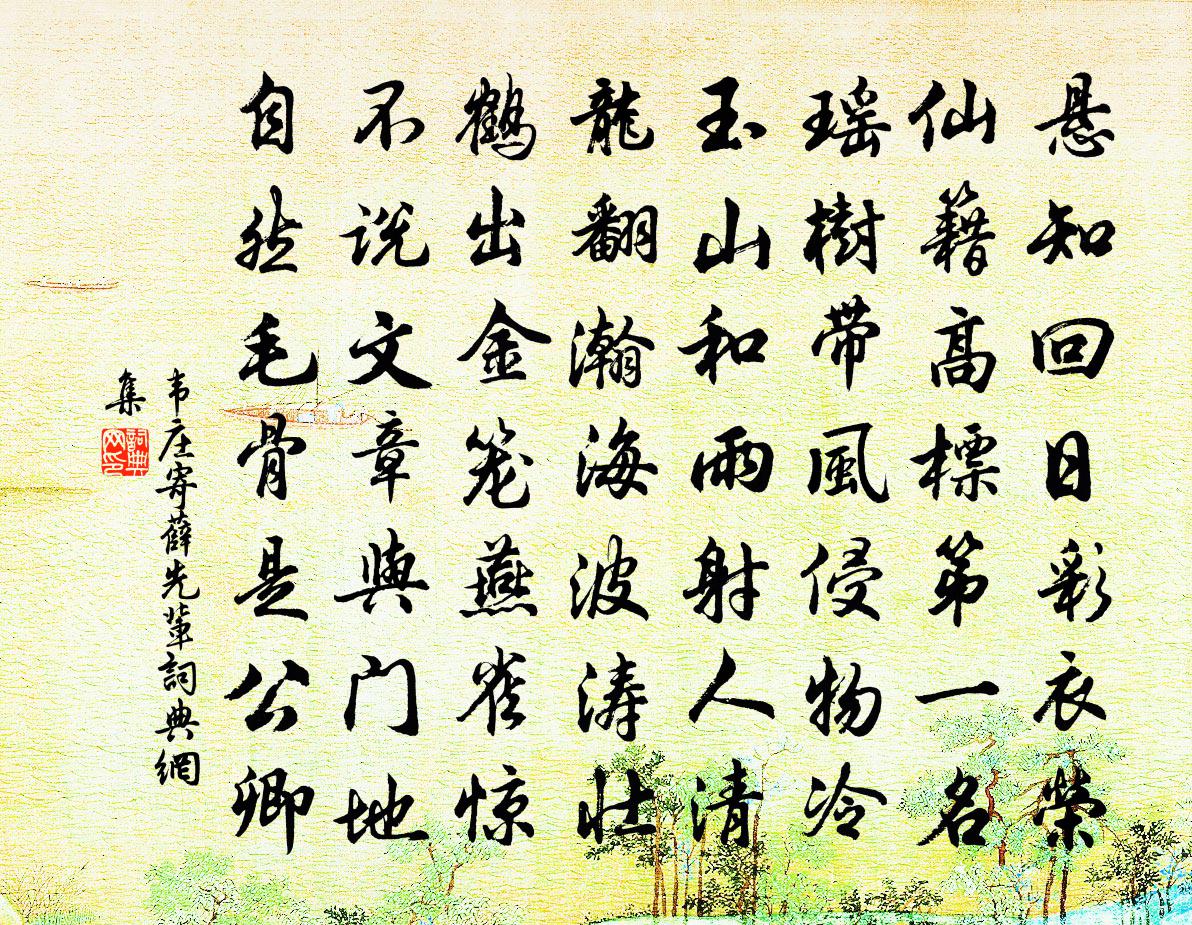 悬知回日彩衣榮
仙籍高標第一名
瑶樹带風侵物冷
玉山和雨射人清
龍翻瀚海波涛壮
鹤出金笼燕雀惊
不说文章與门地
自然毛骨是公卿
韦庄寄薛先輩詞典網
集
詞典網印